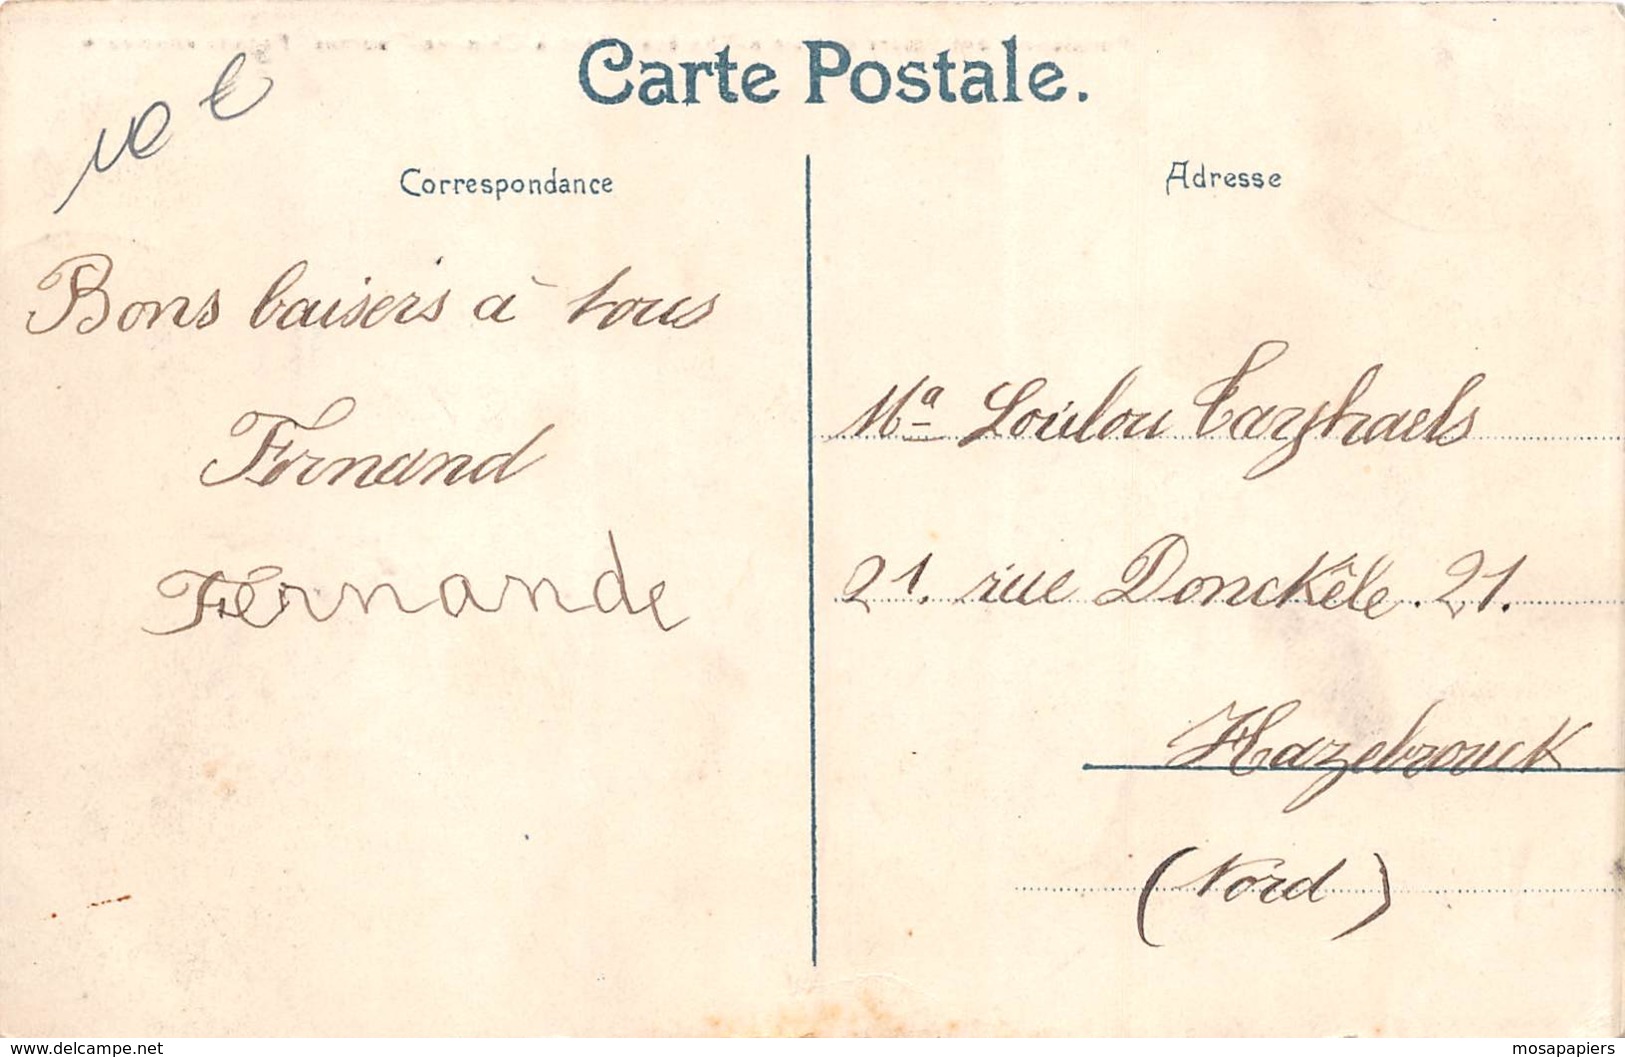 Carte Postale.
10 €
Correspondance
Bons baisers à tous
Fernand
Fernande
Adresse
Ma Loulou
21. rue Donckêle. 21.
Hazebrouck
(Nord)
www.delcampe.net
mosapapiers